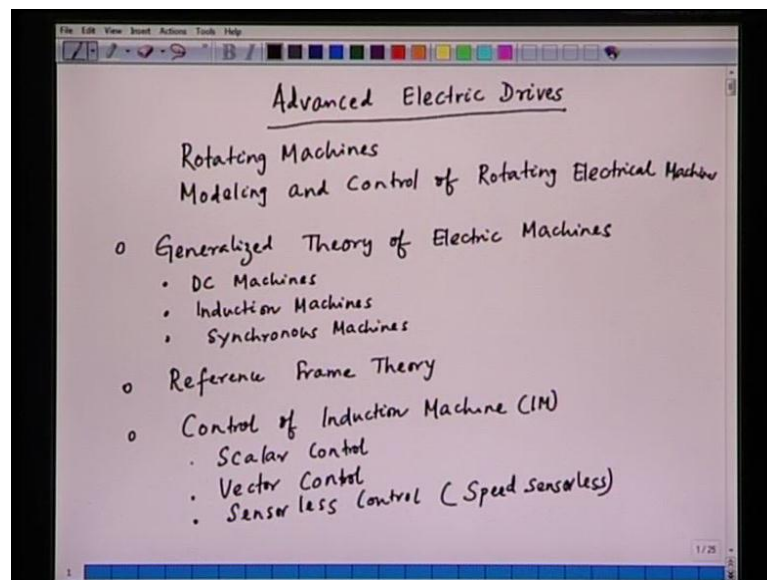 File Edit View Insert Actions Tools Help
B I
Advanced Electric Drives
Rotating Machines
Modeling and Control of Rotating Electrical Machines
o Generalized Theory of Electric Machines
• DC Machines
• Induction Machines
• Synchronous Machines
o Reference Frame Theory
o Control of Induction Machine (IM)
• Scalar Control
• Vector Control
• Sensorless Control (Speed Sensorless)
1/25
1